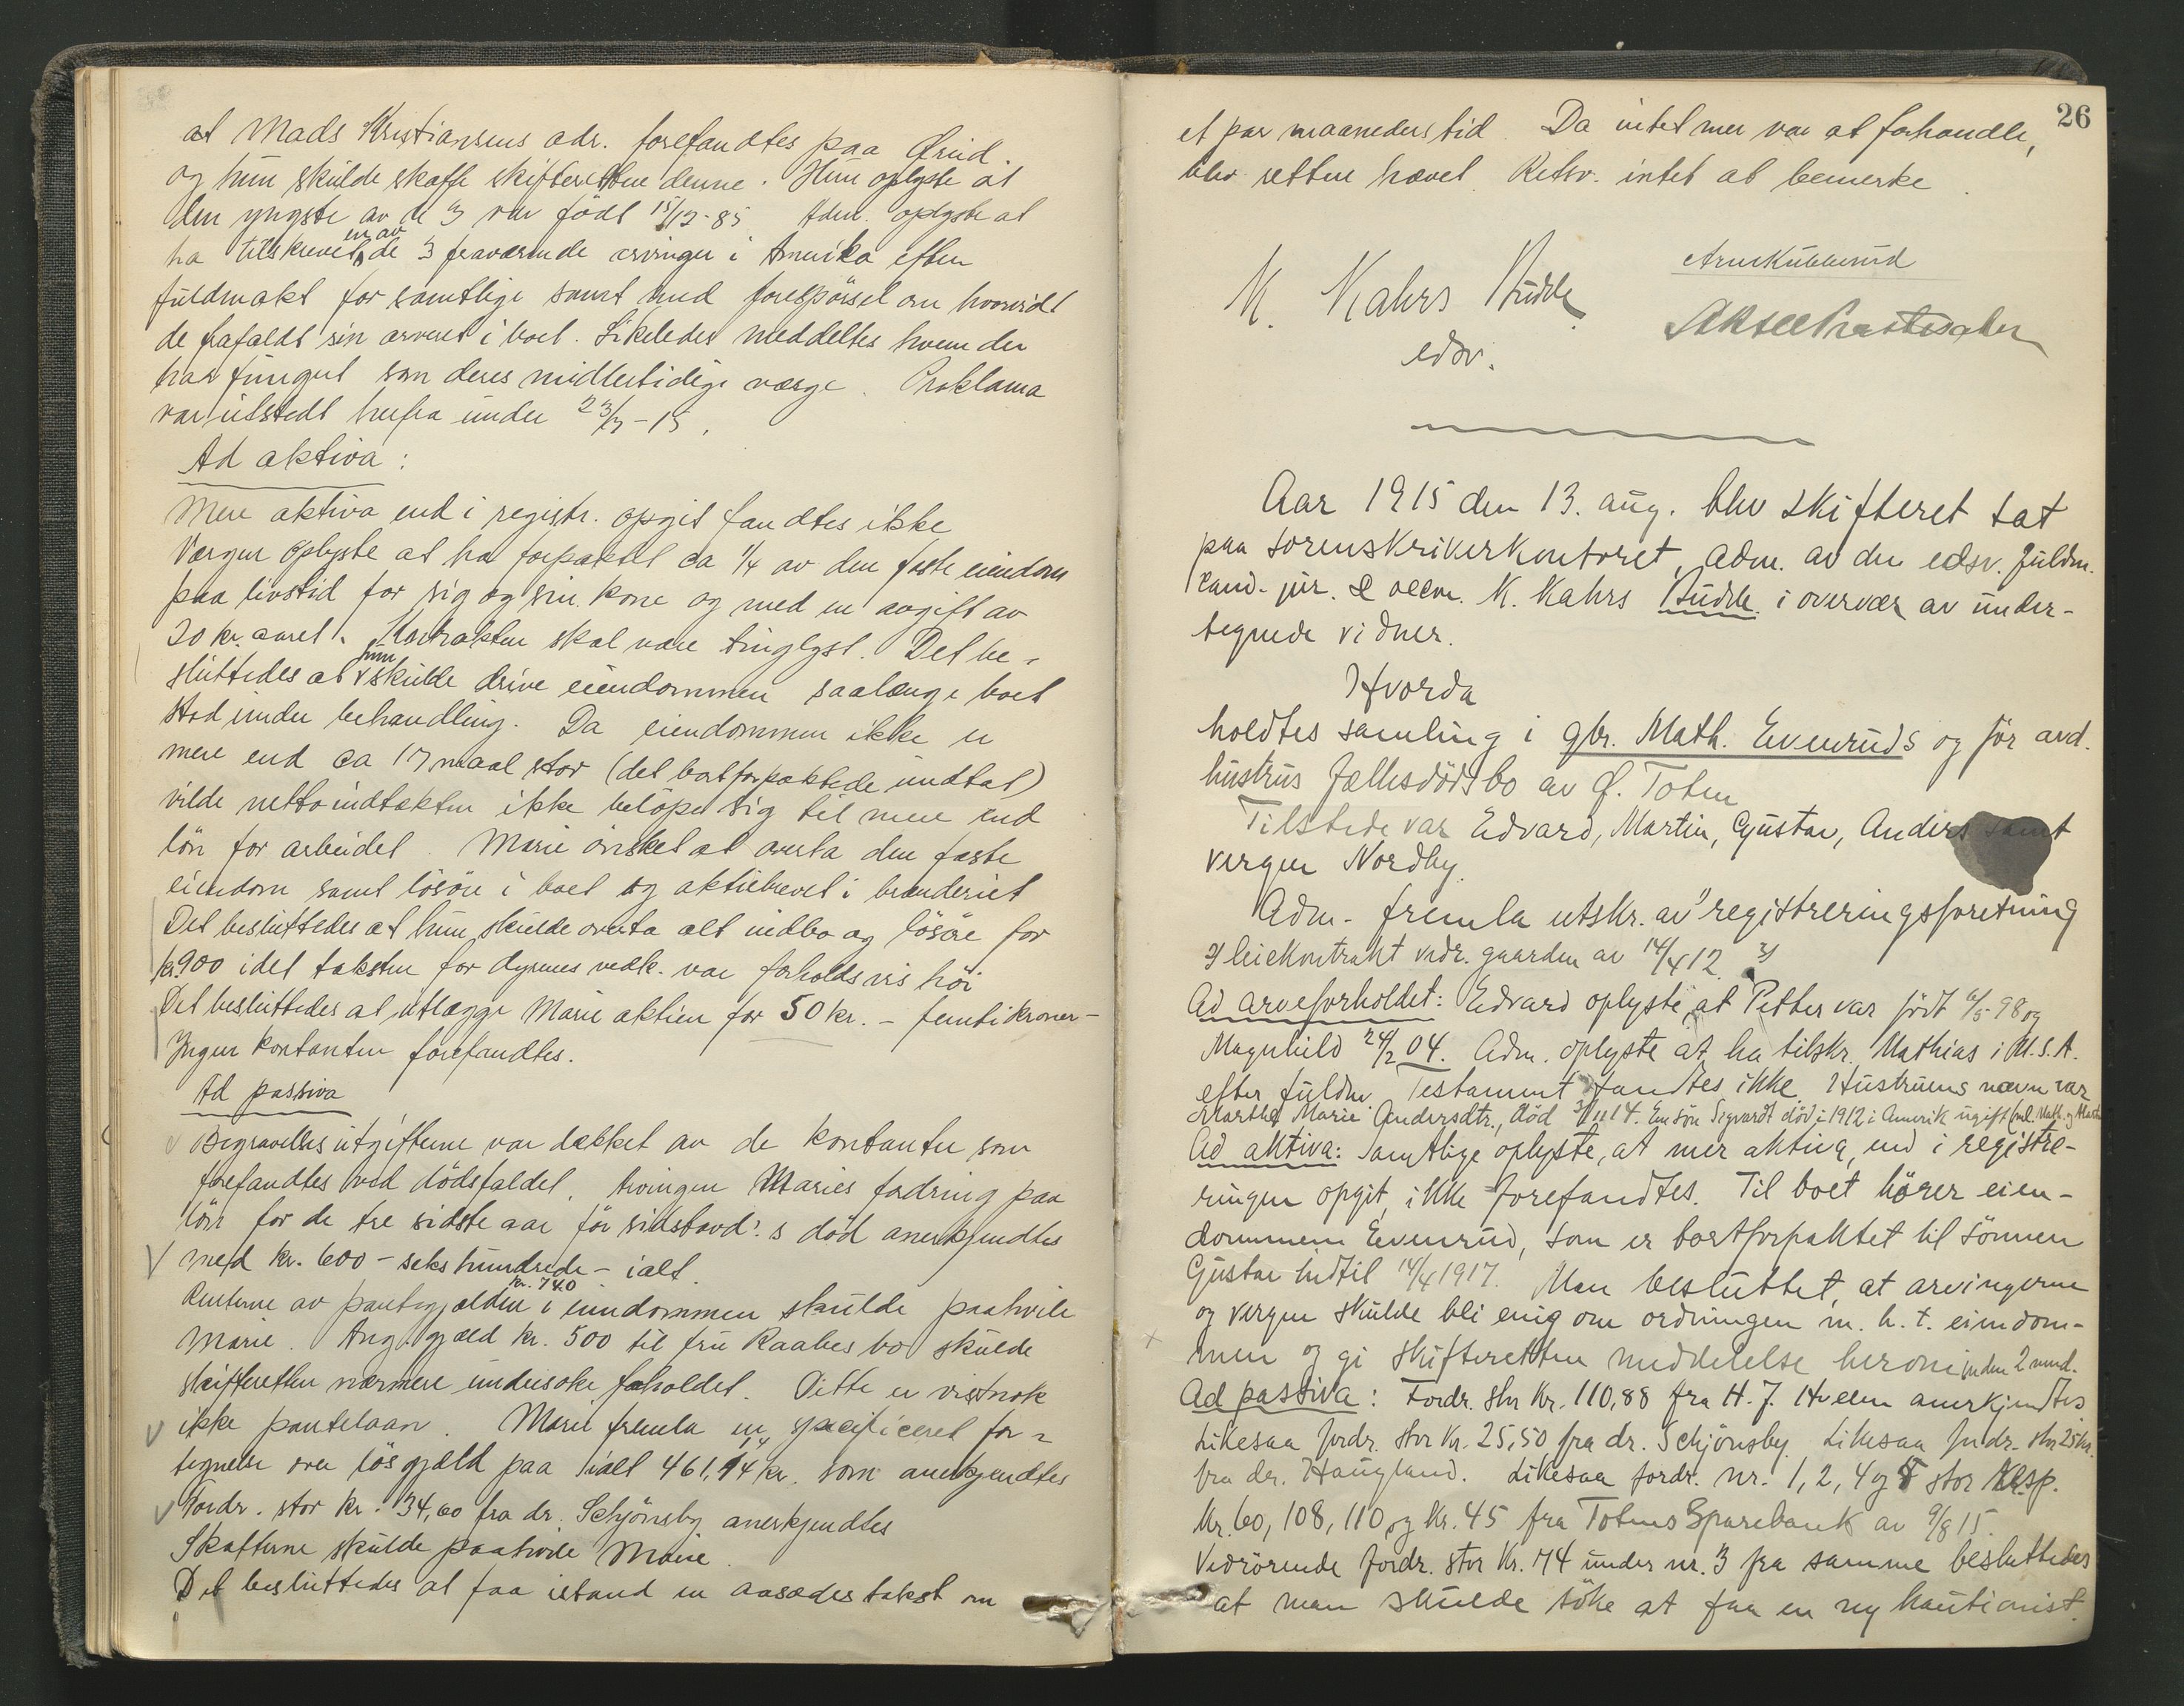 at Mads Kristiansens adr. forefandtes paa Ørud.
og hun skulde skaffe skifteretten denne. Hun oplyste at
den yngste av de 3 var født 15/12-85 Adm. oplyste at
ha tilskrevet en av de 3 fraværende arvinger i Amerika efter
fuldmakt for samtlige samt med forespørsel om hvorvidt
de frafaldt sin arveret i boet. Likeledes meddeltes hvem der
har fungert som deres midlertidige værge. Proklama
var utstedt herfra under 23/7-15.
Ad aktiva:
Mere aktiva end i registr. opgit fandtes ikke
Værgen oplyste at ha forpaktet ca 1/4 av den faste eiendom
paa livstid for sig og sin kone og med en avgift av
20 kr. aaret. Kontrakten skal være tinglyst. Det be-
sluttedes at hun skulde drive eiendommen saalænge boet
stod under behandling. Da eiendommen ikke er
mere end ca 17 maal stor (det bortforpaktede undtat)
vilde nettoindtækten ikke beløpe sig til mere end
løn for arbeidet. Marie ønsket at overta den faste
eiendom samt løsøre i boet og aktiebrevet i brænderiet
Det besluttedes at hun skulde overta alt indbo og løsøre for
kr. 900 idet taksten for dyrenes vedk. var forholdsvis høi
Det besluttedes at utlægge Marie aktien for 50 kr. - femti kroner -
Ingen kontanter forefandtes.
Ad passiva
v Begravelsesutgifterne var dækket av de kontanter som
forefandtes ved dødsfaldet. Arvingen Maries fordring paa
løn for de tre sidste aar før sidstavd's død anerkjendtes
v med kr. 600 - sekshundrede - ialt.
Renterne av pantegjælden kr. 740 i eiendommen skulde paahvile
Marie. Ang. gjæld kr. 500 til fru Raabes bo skulde
skifteretten nærmere undersøke forholdet. Dette er vistnok
v ikke pantelaan. Marie fremla en specificeret for-
tegnelse over løsgjæld paa ialt 461,14 kr. som anerkjendtes
v Fordr. stor kr. 34,60 fra dr. Schjønsby anerkjendtes
Skatterne skulde paahvile Marie.
Det besluttedes at faa istand en aasædestakst om
26
et par maaneders tid. Da intet mer var at forhandle,
blev retten hævet. Retsv. intet at bemerke.
Arne Kubberud
K. Kahrs Budde
edsv.
Aar 1915 den 13. aug. blev skifteret sat
paa sorenskriverkontoret, adm. av den edsv. fuldm.
cand. jur. K. Kahrs Budde i overvær av under-
tegnede vidner.
Hvorda
holdtes samling i gbr. Math. Evenruds og før avd.
hustrus fællesdødsbo av Ø. Toten
Tilstede var Edvard, Martin, Gustav, Anders samt
vergen Nordby.
Adm. fremla utskr. av 1) registreringsforretning
2) leiekontrakt vedr. gaarden av 14/4 12. 3)
Ad arveforholdet: Edvard oplyste, at Petter var født 6/5-98 og
Magnhild 24/2 04. Adm. oplyste at ha tilskr. Mathias i U.S.A.
efter fuldm. Testament fandtes ikke. Hustruens navn var
Marthe Marie Andersdtr., død 3/11 14. En søn Sigvardt død i 1912 i Amerik ugift
Ad aktiva: Samtlige oplyste, at mer aktiva, end i registre-
ringen opgit, ikke forefandtes. Til boet hører eien-
dommen Evenrud, som er bortforpaktet til sønnen
Gustav indtil 14/4 1917. Man besluttet, at arvingerne
og vergen skulde bli enig om ordningen m. h. t. eiendom-
x men og gi skifteretten meddelelse herom inden 2 mnd.
Ad passiva: Fordr. stor kr. 110,88 fra H. J. Hveem anerkjendtes
Likesaa fordr. stor kr. 25,50 fra dr. Schjønsby. Likesaa fordr. stor 25 kr.
fra dr. Haugland. Likesaa fordr. nr. 1, 2, 4 og 5 stor resp.
kr. 60, 108, 110, og kr. 45 fra Totens Sparebank av 9/8 15.
Vedrørende fordr. stor kr. 74 under nr. 3 fra samme besluttedes
at man skulde søke at faa en ny kautionist.